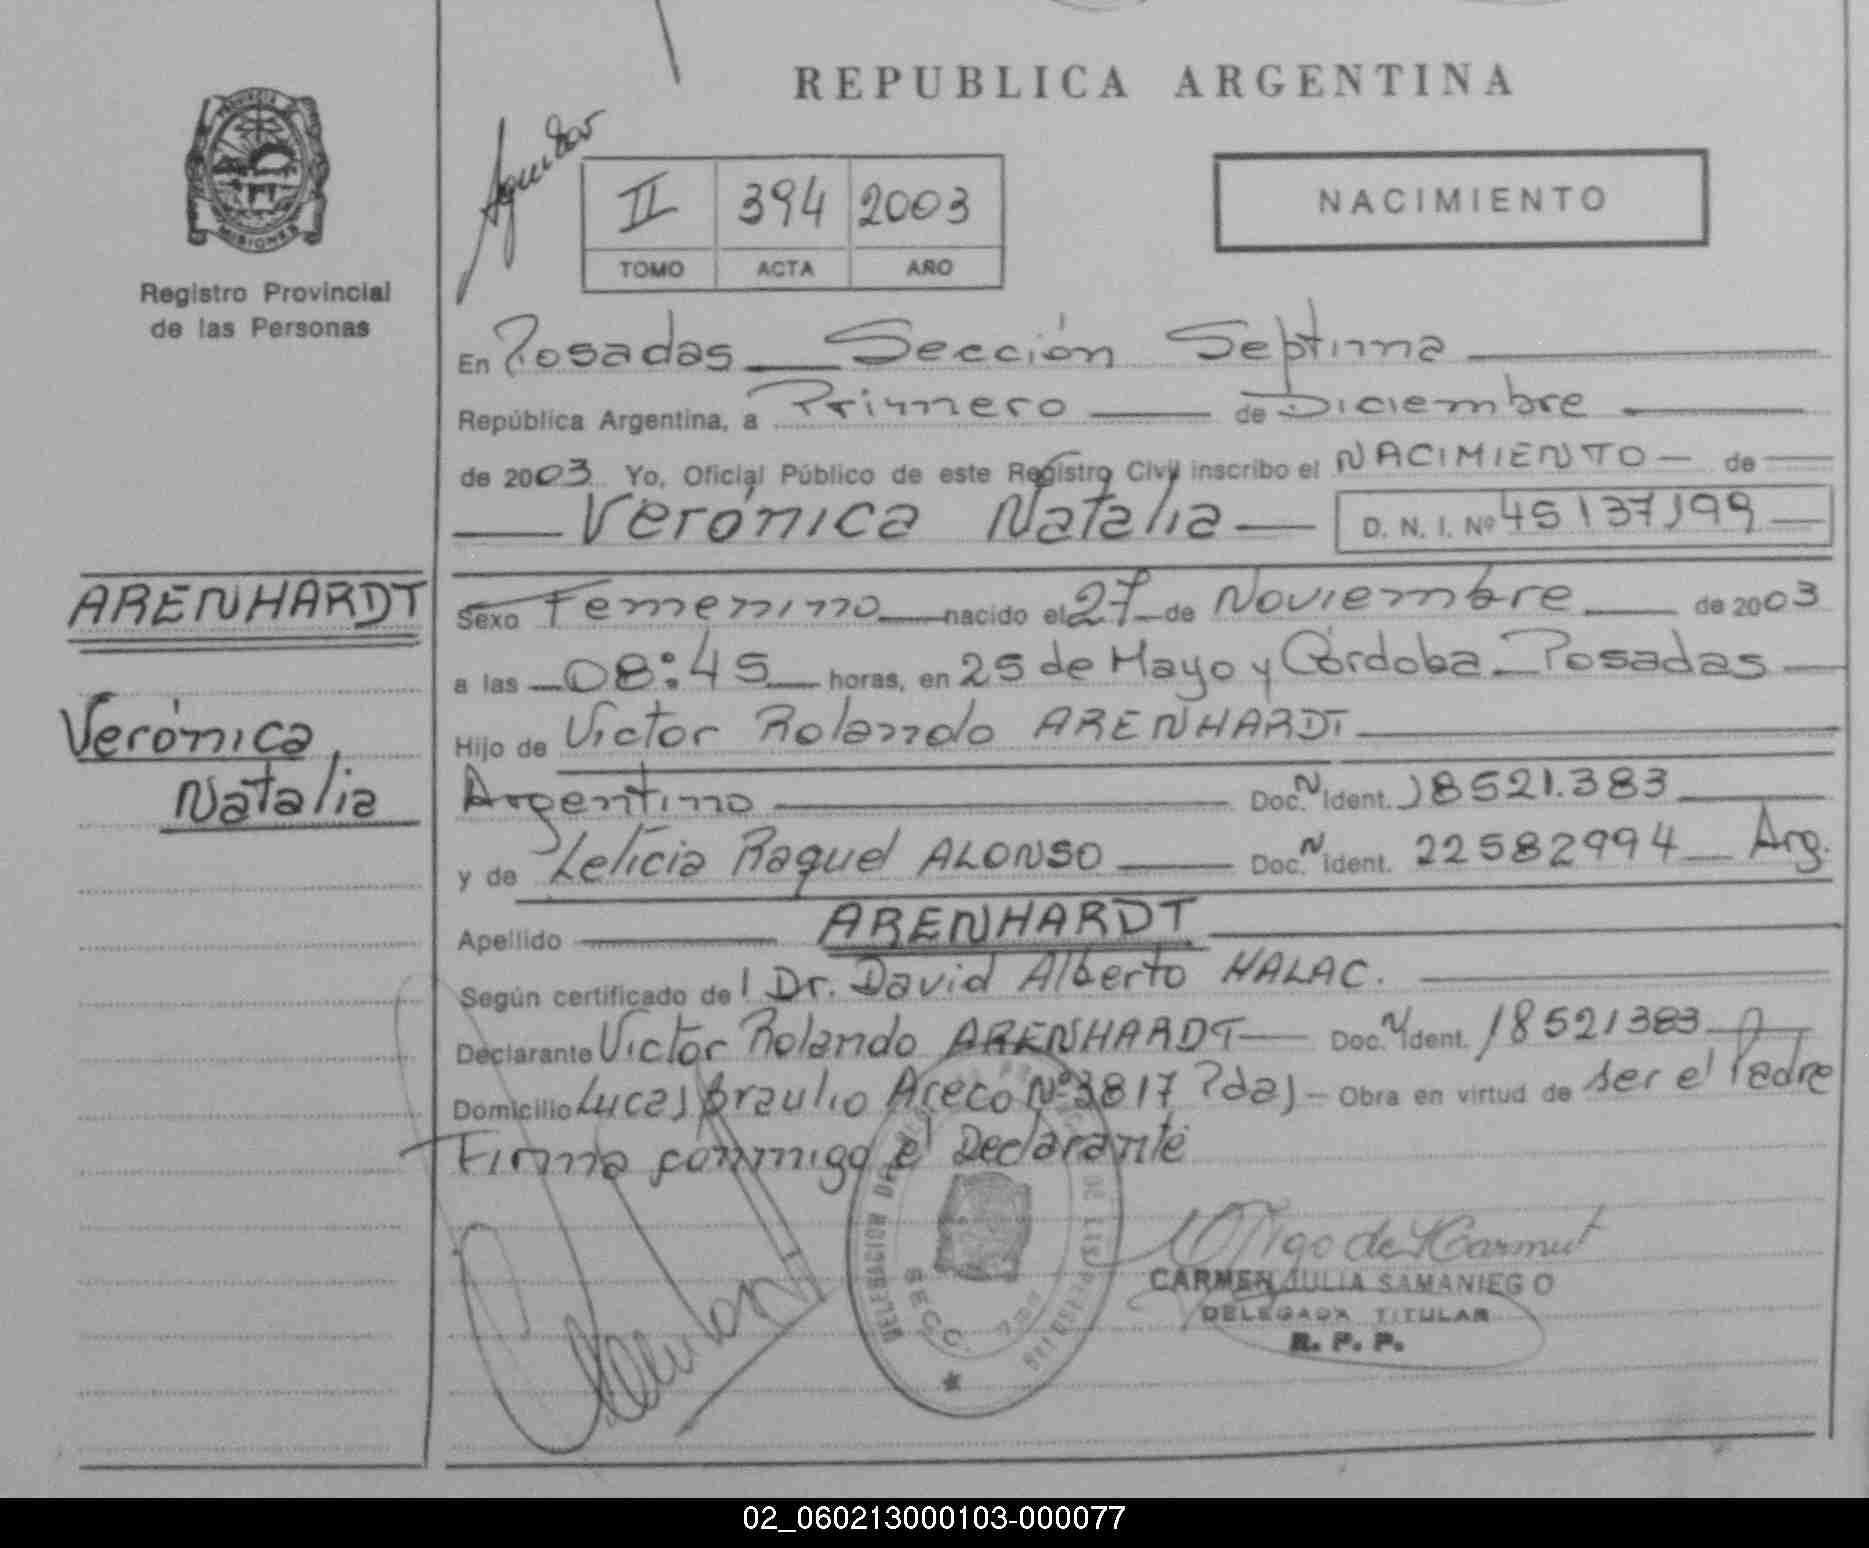 REPUBLICA ARGENTINA
PROVINCIA DE MISIONES
Registro Provincial
de las Personas
II 394 2003
TOMO ACTA AÑO
NACIMIENTO
En Posadas Sección Septima
República Argentina, a Primero de Diciembre
de 2003 Yo, Oficial Público de este Registro Civil inscribo el NACIMIENTO de
Verónica Natalia D. N. I. Nº 45137199
ARENHARDT
Verónica
Natalia
Sexo Femenino nacido el 27 de Noviembre de 2003
a las 08:45 horas, en 25 de Mayo y Córdoba Posadas
Hijo de Victor Rolando ARENHARDT
Argentino Doc. N Ident. 18521.383
y de Leticia Raquel ALONSO Doc. N Ident. 22582994 Arg.
Apellido ARENHARDT
Según certificado del Dr. David Alberto HALAC.
Declarante Victor Rolando ARENHARDT Doc. N Ident. 18521383
Domicilio Lucas Braulio Areco Nº 3817 Pdas Obra en virtud de ser el Padre
Firma conmigo el Declarante
CARMEN JULIA SAMANIEGO
DELEGADA TITULAR
R. P. P.
02_060213000103-000077